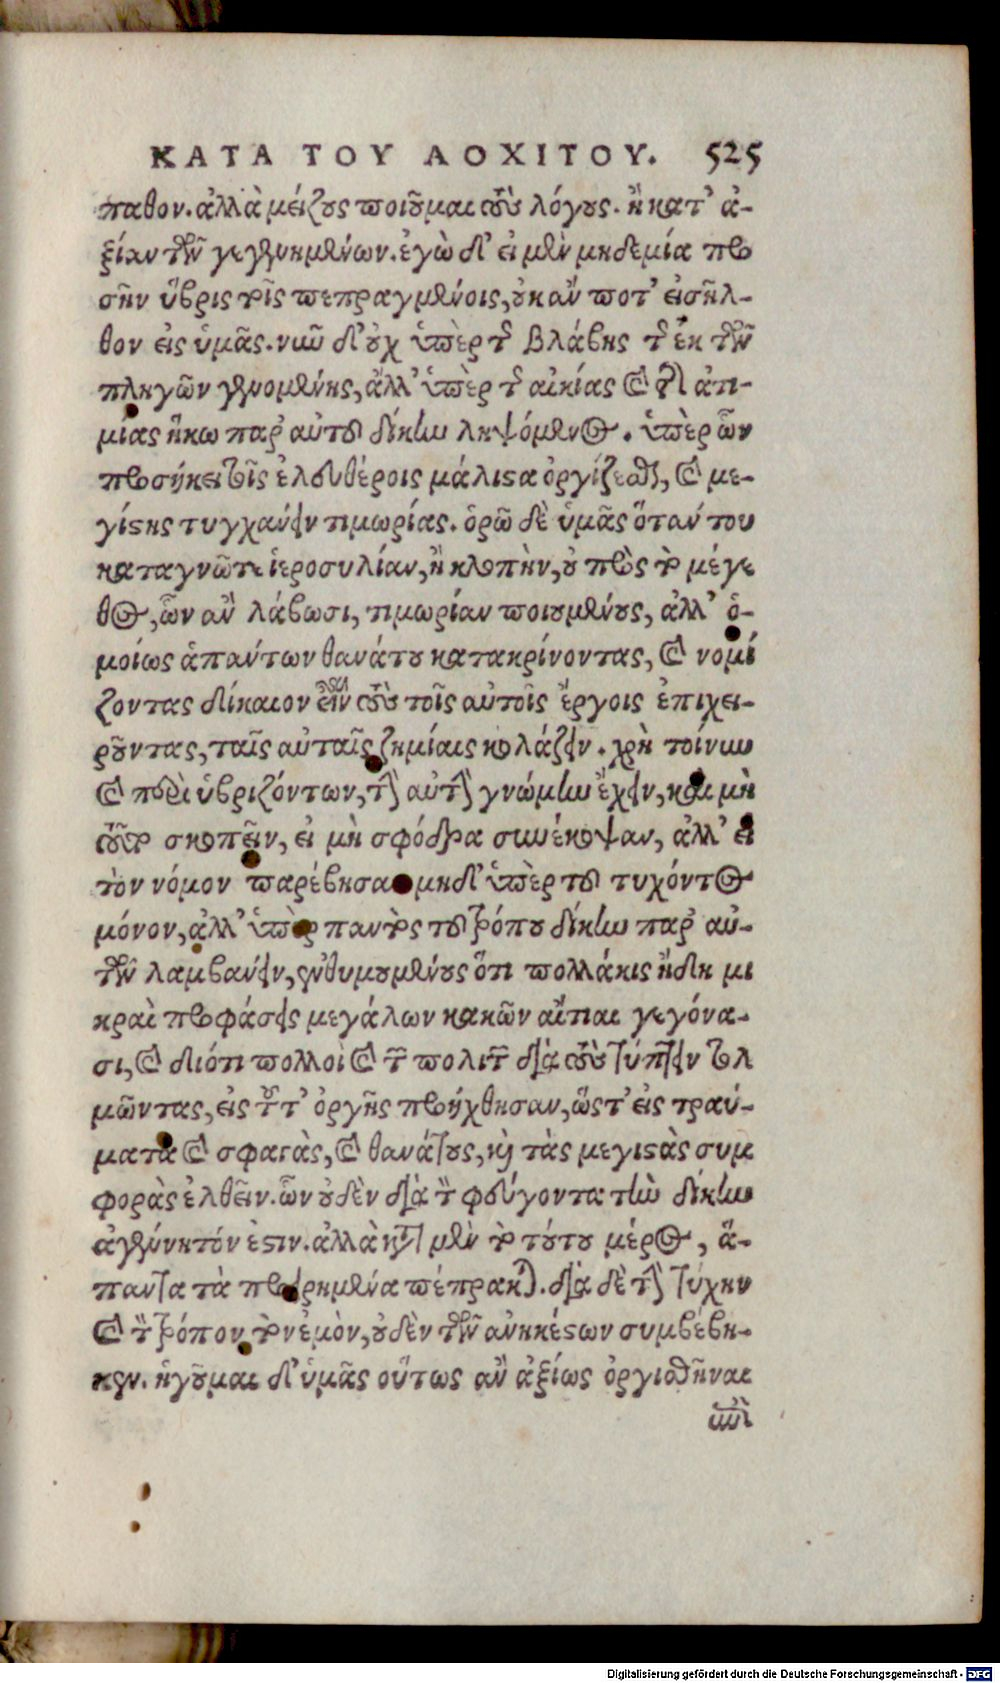 ΚΑΤΑ ΤΟΥ ΛΟΧΙΤΟΥ. 525
παθον. ἀλλὰ μείζους ποιοῦμαι τοὺς λόγους. ἢ κατ' ἀ-
ξίαν τῶν γεγενημένων. ἐγὼ δ' εἰ μὲν μηδεμία προ
σῆν ὕβρις τοῖς πεπραγμένοις, οὐκ ἄν ποτ' εἰσῆλ-
θον εἰς ὑμᾶς. νῦν δ' οὐχ ὑπὲρ τῆς βλάβης τῆς ἐκ τῶν
πληγῶν γενομένης, ἀλλ' ὑπὲρ τῆς αἰκίας καὶ τῆς ἀτι-
μίας ἥκω παρ' αὐτοῦ δίκην ληψόμενος. ὑπὲρ ὧν
προσήκει τοῖς ἐλευθέροις μάλιστα ὀργίζεσθαι, καὶ με-
γίστης τυγχάνειν τιμωρίας. ὁρῶ δὲ ὑμᾶς ὅταν του
καταγνῶτε ἱεροσυλίαν, ἢ κλοπὴν, οὐ πρὸς τὸ μέγε
θος, ὧν ἂν λάβωσι, τιμωρίαν ποιουμένους, ἀλλ' ὁ-
μοίως ἁπάντων θανάτου κατακρίνοντας, καὶ νομί
ζοντας δίκαιον εἶναι τοὺς τοῖς αὐτοῖς ἔργοις ἐπιχει-
ροῦντας, ταῖς αὐταῖς ζημίαις κολάζειν. χρὴ τοίνυν
καὶ περὶ ὑβριζόντων, τὴν αὐτὴν γνώμην ἔχειν, καὶ μὴ
τοῦτο σκοπεῖν, εἰ μὴ σφόδρα συνέκοψαν, ἀλλ' εἰ
τὸν νόμον παρέβησαν μηδ' ὑπὲρ τοῦ τυχόντος
μόνον, ἀλλ' ὑπὲρ παντὸς τοῦ τρόπου δίκην παρ' αὐ-
τῶν λαμβάνειν, ἐνθυμουμένους ὅτι πολλάκις ἤδη μι
κραὶ προφάσεις μεγάλων κακῶν αἴτιαι γεγόνα-
σι, καὶ διότι πολλοὶ καὶ τῶν πολιτῶν διὰ τοὺς τύπτειν τολ
μῶντας, εἰς τοῦτ' ὀργῆς προήχθησαν, ὥστ' εἰς τραύ-
ματα καὶ σφαγὰς, καὶ θανάτους, καὶ τὰς μεγιστὰς συμ
φορὰς ἐλθεῖν. ὧν οὐδὲν διὰ τὸν φεύγοντα τὴν δίκην
ἀγένητόν ἐστιν. ἀλλὰ κατὰ μὲν τὸ τούτου μέρος, ἅ-
παντα τὰ προειρημένα πέπρακται. διὰ δὲ τὴν τύχην
καὶ τὸν τρόπον τὸν ἐμὸν, οὐδὲν τῶν ἀνηκέστων συμβέβη-
κεν. ἡγοῦμαι δ' ὑμᾶς οὕτως ἂν ἀξίως ὀργισθῆναι
ἐπὶ
Digitalisierung gefördert durch die Deutsche Forschungsgemeinschaft - DFG